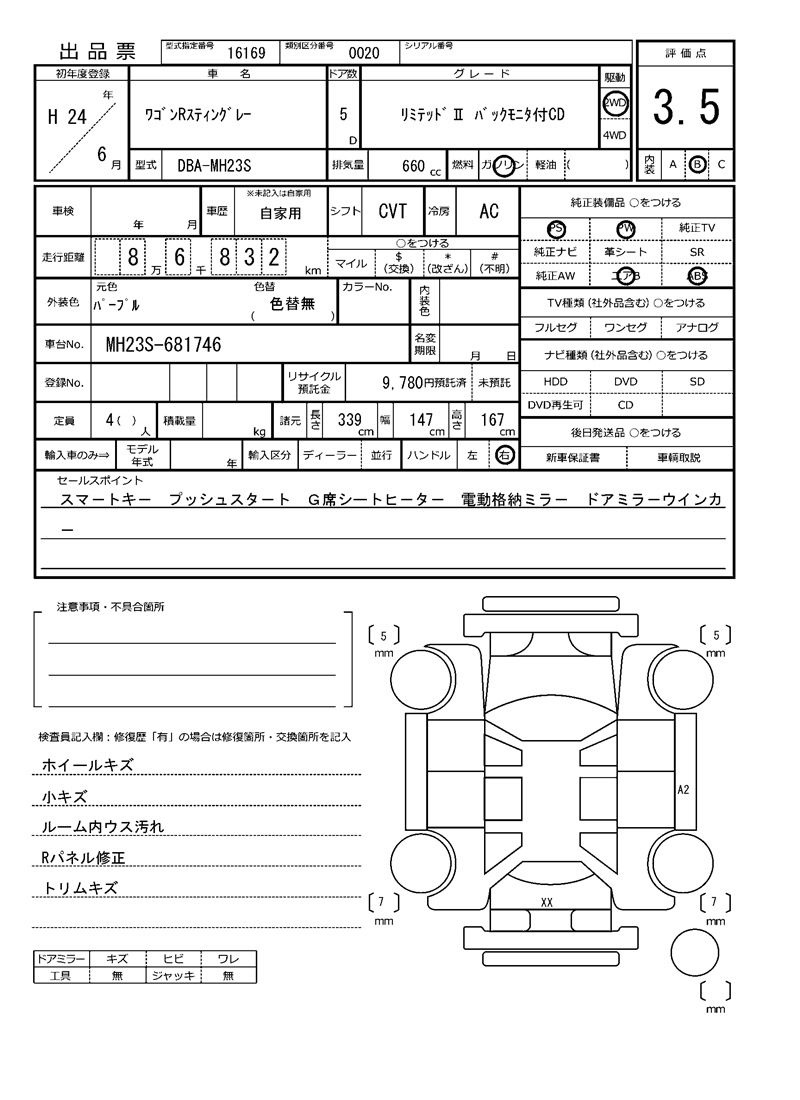 出品票 型式指定番号 16169 類別区分番号 0020 シリアル番号 評価点
初年度登録 車名 ドア数 グレード 駆動
H 24 年 6 月 ワゴンRスティングレー 5 D リミテッドⅡ バックモニタ付CD 2WD 4WD 3.5
型式 DBA-MH23S 排気量 660 cc 燃料 ガソリン 軽油 ( ) 内装 A B C
車検 年 月 車歴 ※未記入は自家用 自家用 シフト CVT 冷房 AC 純正装備品 ○をつける
PS PW 純正TV
走行距離 8 万 6 千 8 3 2 km ○をつける マイル $ (交換) * (改ざん) # (不明) 純正ナビ 革シート SR
純正AW エアB ABS
外装色 元色 パープル 色替 ( 色替無 ) カラーNo. 内装色 TV種類 (社外品含む) ○をつける
フルセグ ワンセグ アナログ
車台No. MH23S-681746 名変期限 月 日 ナビ種類 (社外品含む) ○をつける
登録No. リサイクル預託金 9,780円預託済 未預託 HDD DVD SD
DVD再生可 CD
定員 4 ( ) 人 積載量 kg 諸元 長さ 339 cm 幅 147 cm 高さ 167 cm 後日発送品 ○をつける
輸入車のみ⇒ モデル年式 年 輸入区分 ディーラー 並行 ハンドル 左 右 新車保証書 車輌取説
セールスポイント
スマートキー プッシュスタート G席シートヒーター 電動格納ミラー ドアミラーウインカ
ー
注意事項・不具合箇所
5 mm
5 mm
検査員記入欄：修復歴「有」の場合は修復箇所・交換箇所を記入
ホイールキズ
小キズ
ルーム内ウス汚れ
Rパネル修正
トリムキズ
A2
XX
7 mm
7 mm
ドアミラー キズ ヒビ ワレ
工具 無 ジャッキ 無
mm